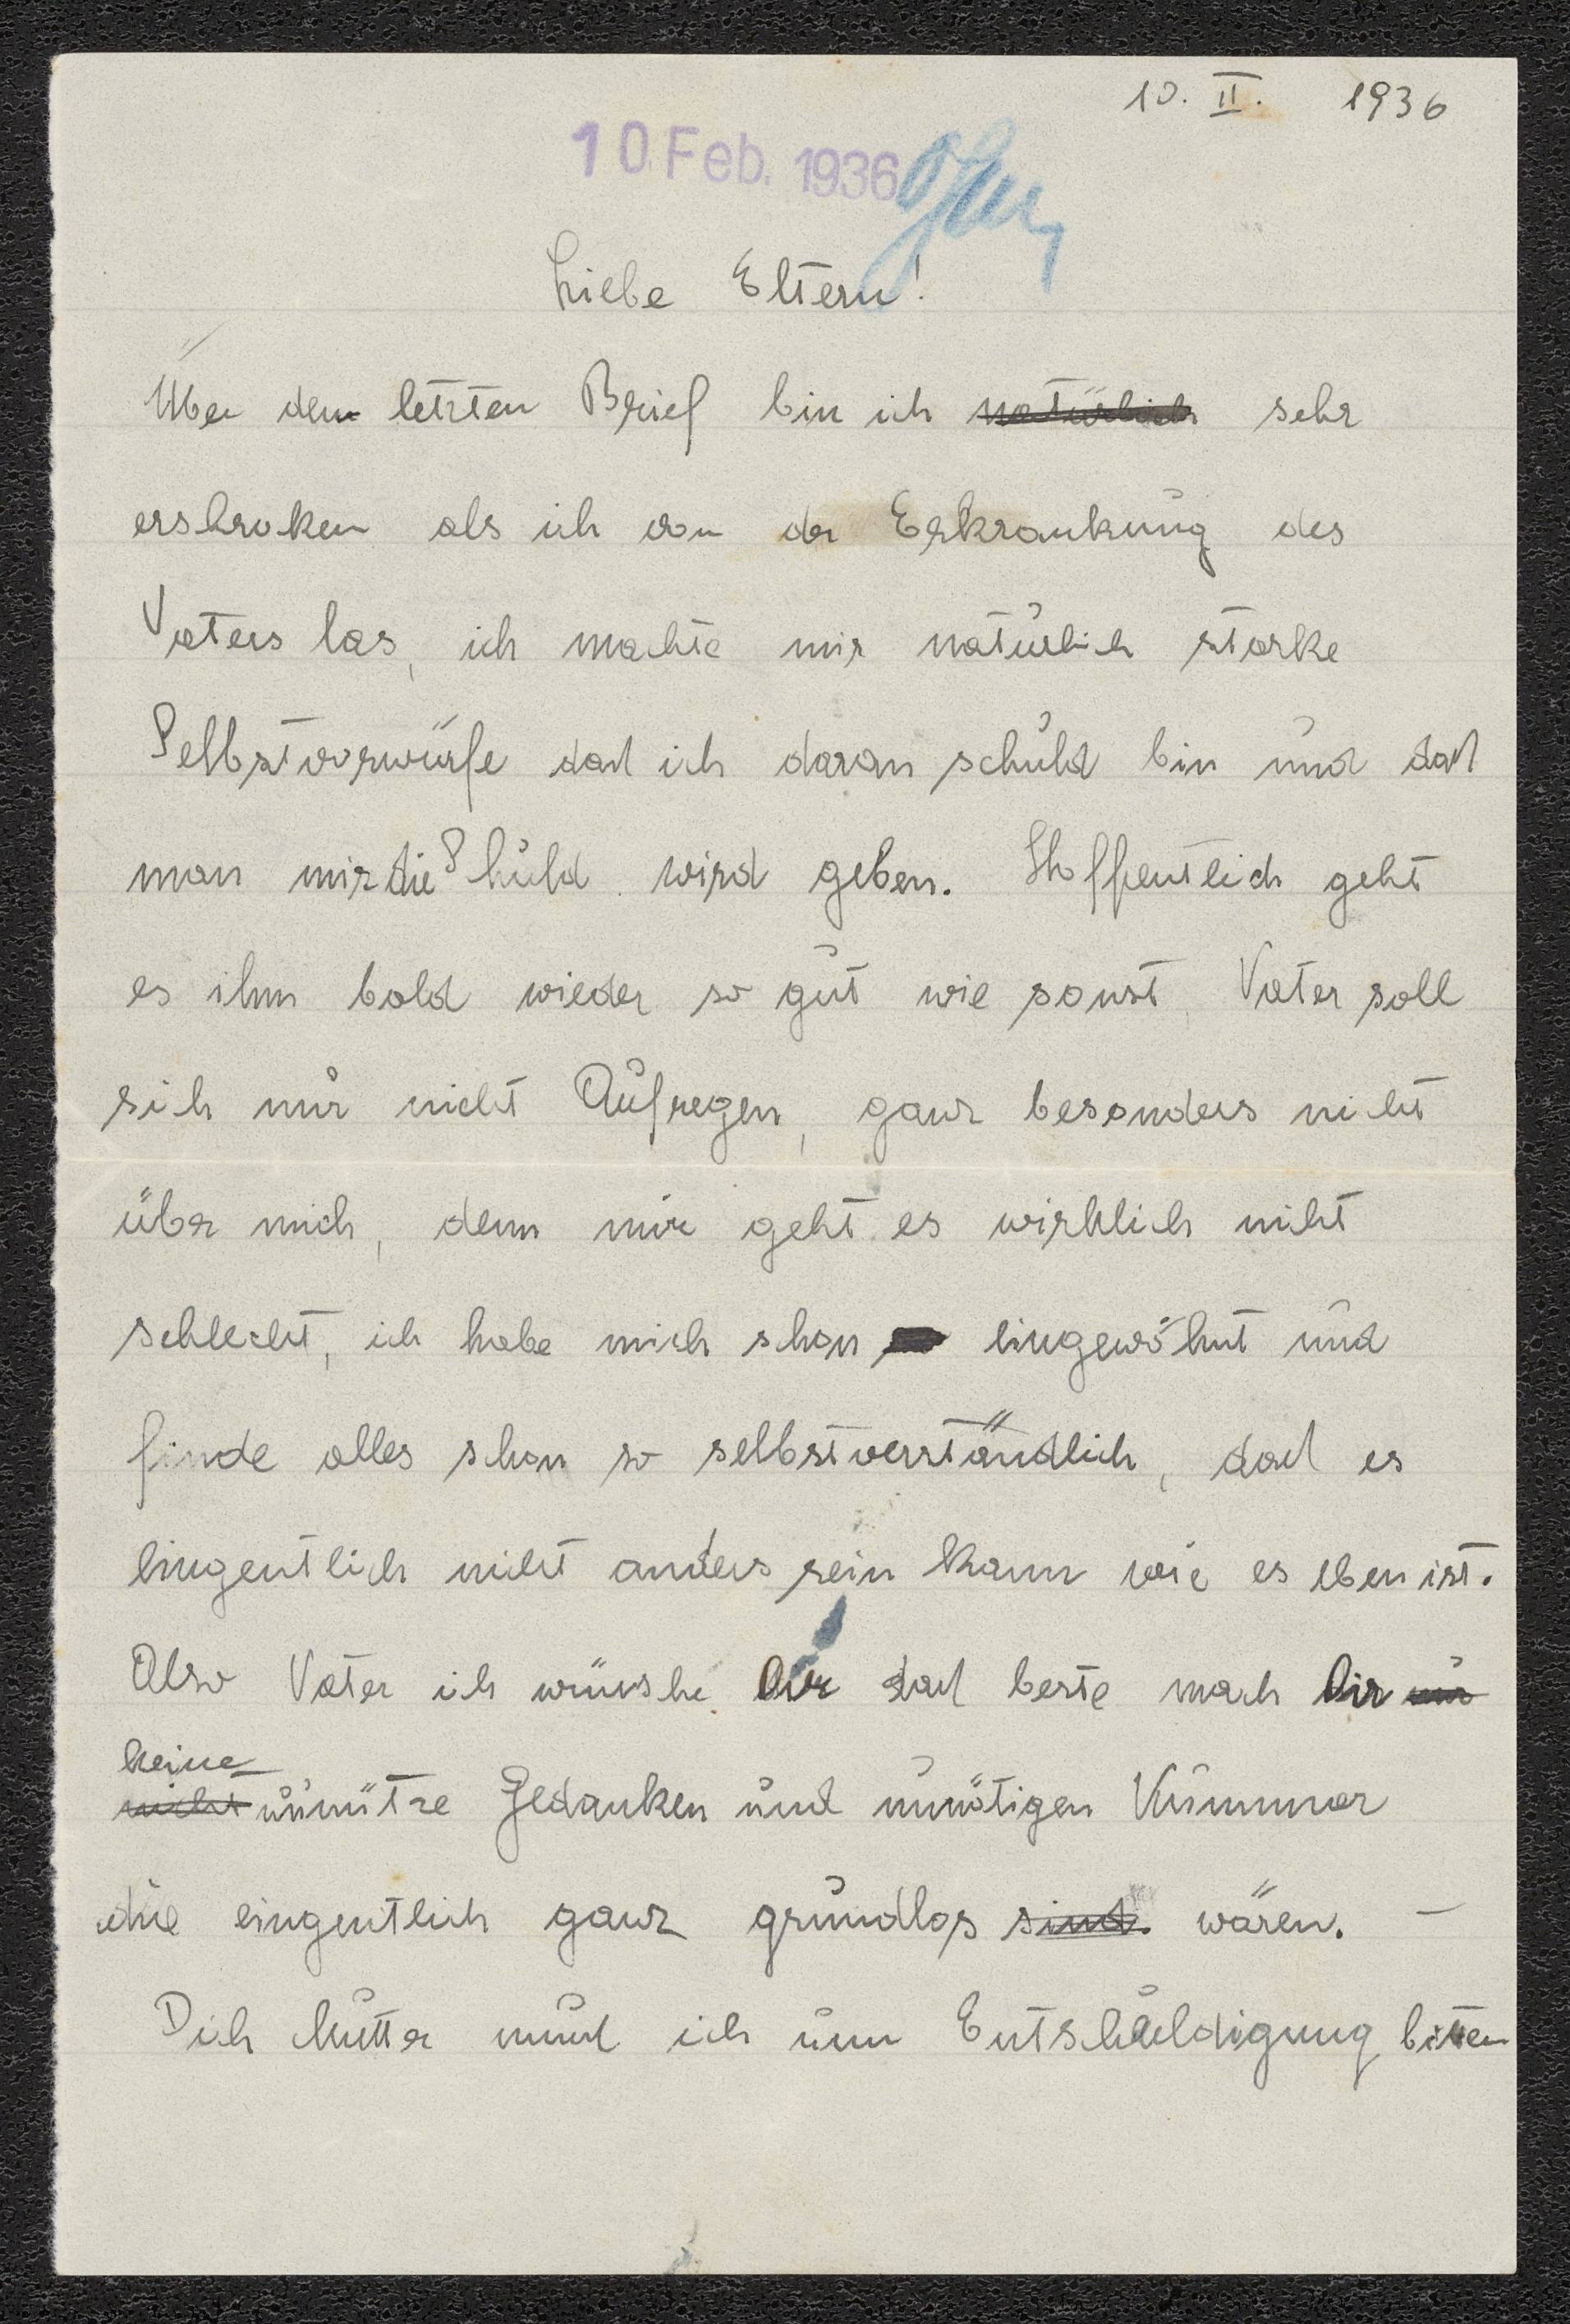 10. II. 1936
10 Feb. 1936
Liebe Eltern!
Über den letzten Brief bin ich natürlich sehr
ershroken als ich von der Erkrankung des
Vaters las, ich machte mir natürlich starke
Selbstvorwürfe daß ich daran schuld bin und daß
man mir die Shuld wird geben. Hoffentlich geht
es ihm bald wieder so gut wie sonst, Vater soll
sich nur nicht Aufregen, ganz besonders nicht
über mich, denn mir geht es wirklich nicht
schlecht, ich habe mich schon eingewöhnt und
finde alles schon so selbstverständlich, daß es
eingentlich nicht anders sein kann wie es eben ist.
Also Vater ich wünshe Dir daß beste mach Dir nur
keine
nicht unnütze Gedanken und unnötigen Kummer
die eingentlich ganz grundlos sind. wären. —
Dich Mutter muß ich um Entshuldigung bitten